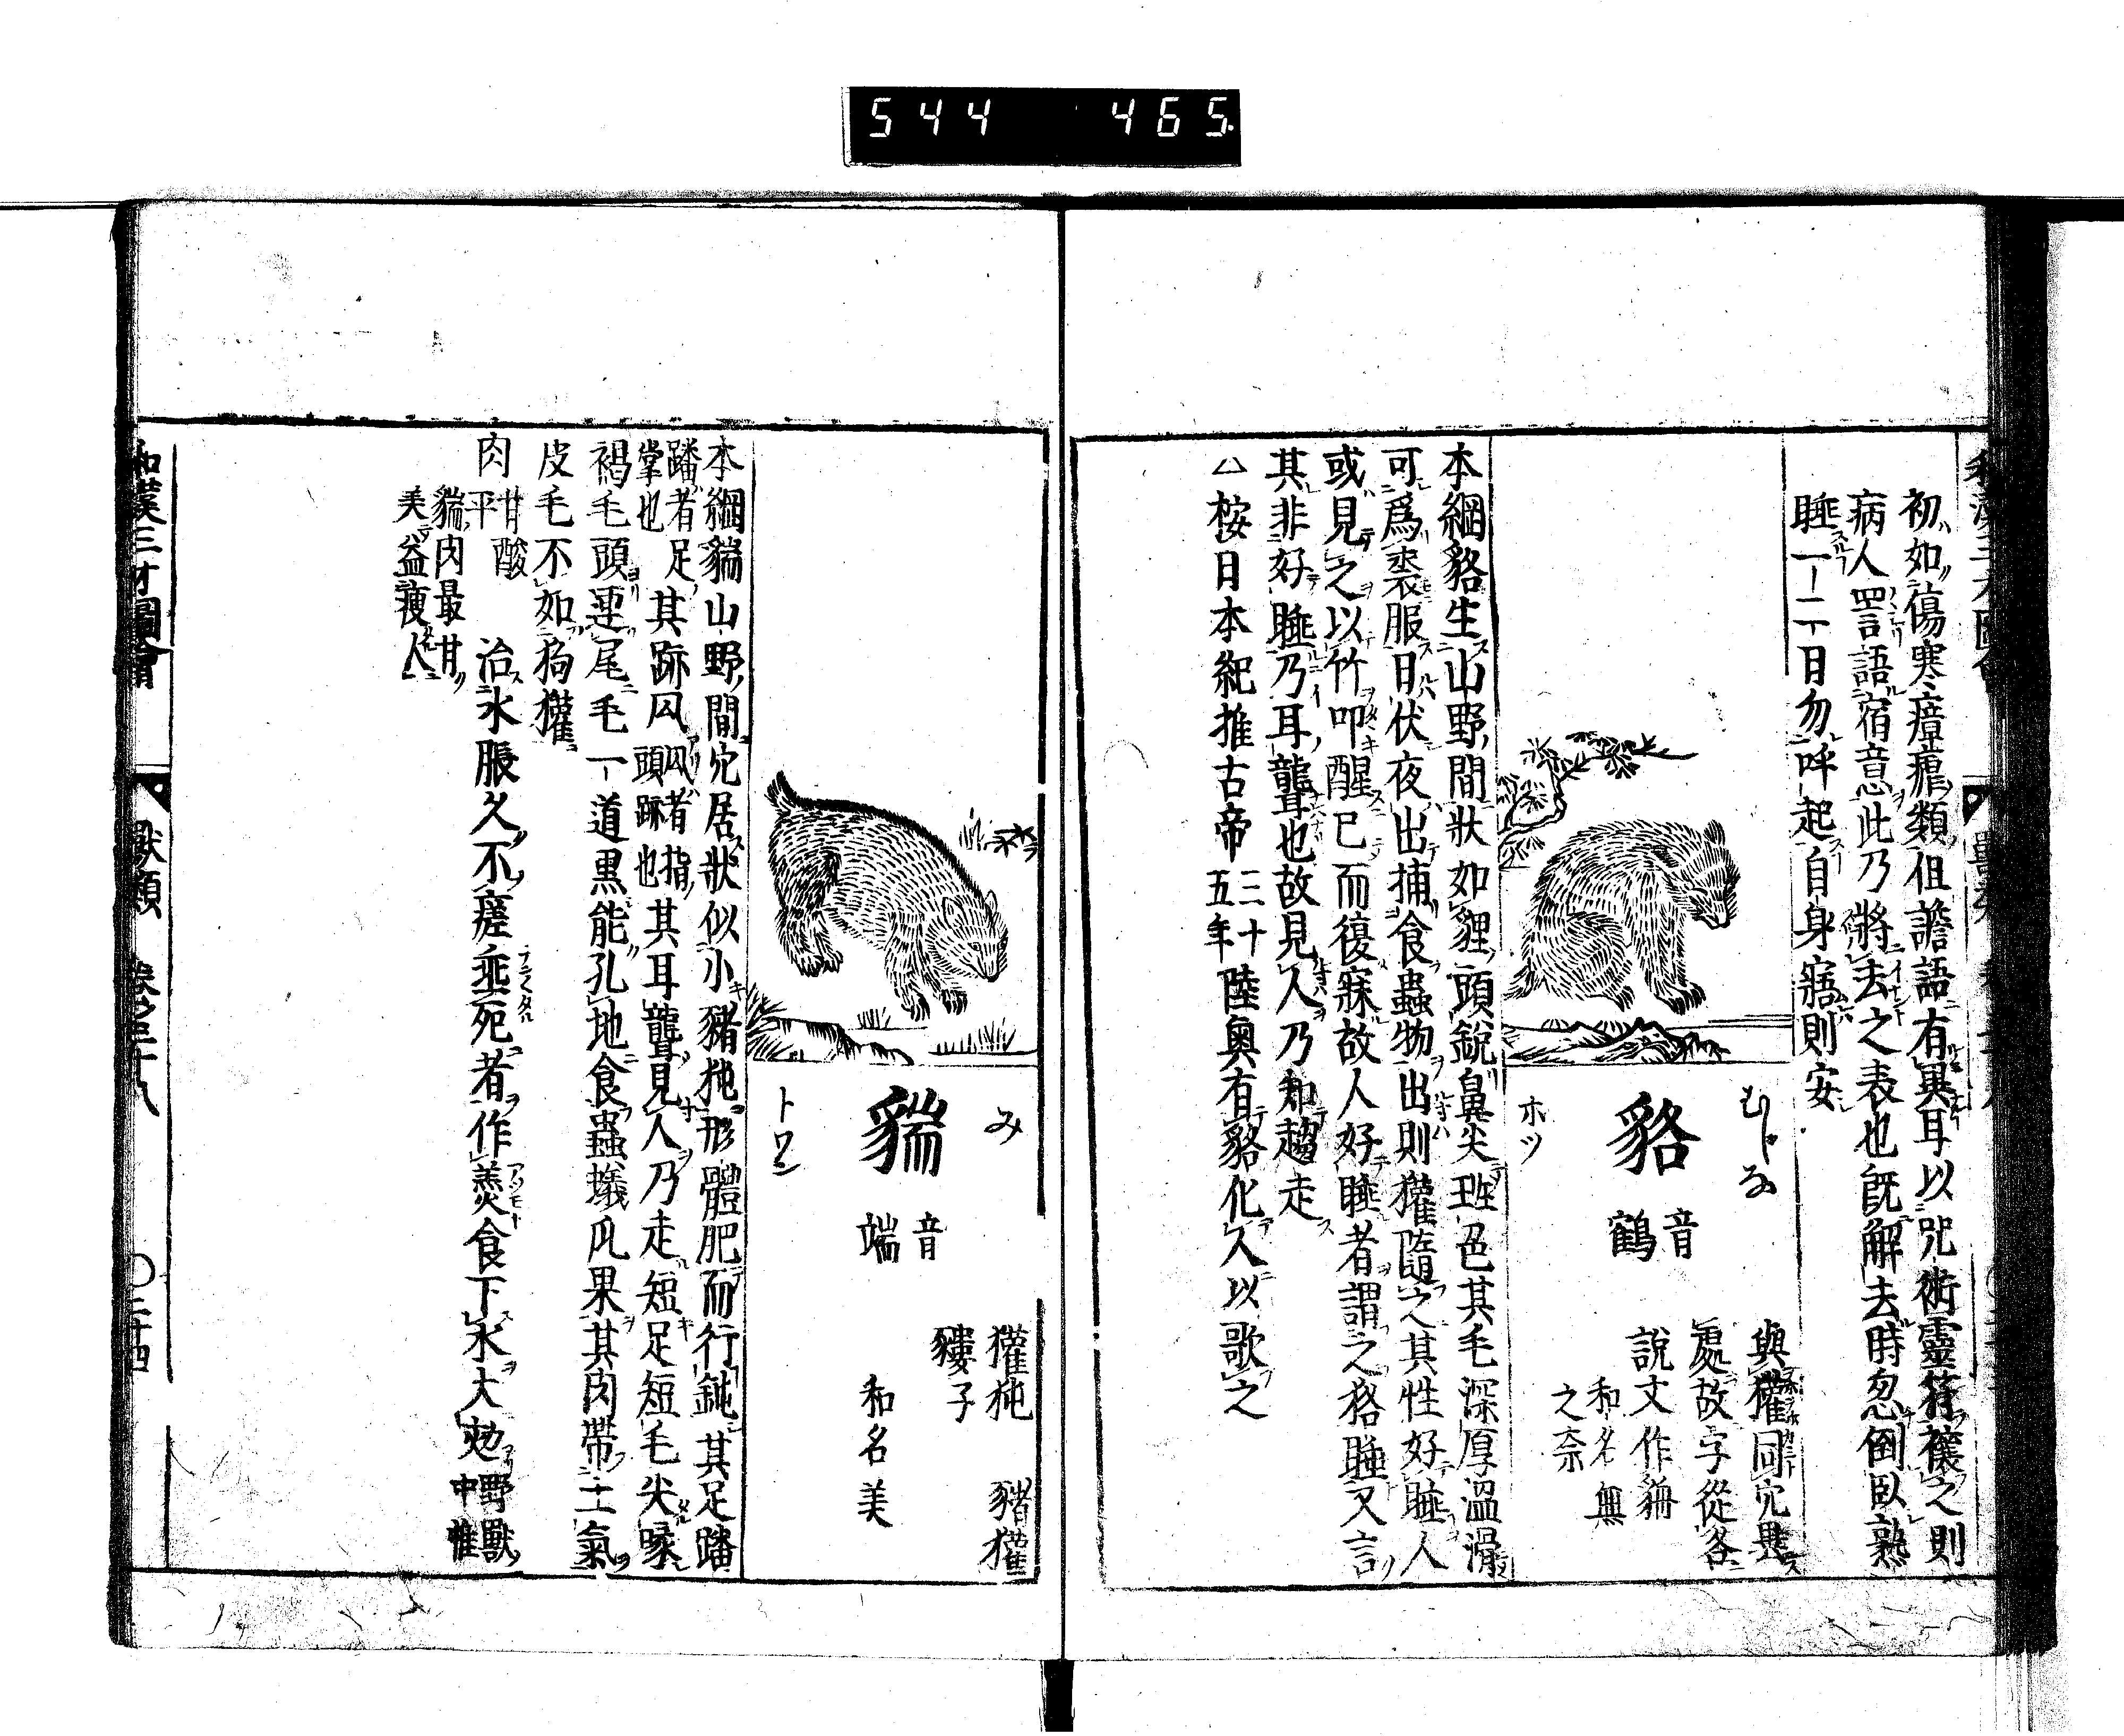 544 465
初如傷寒瘴瘧類但譫語有異耳以咒術靈符禳之則
病人詈語宿意此乃將去之表也既解去時忽倒臥熟
睡一二日勿呼起自身寤則安
むじな
貉
音鶴
ホツ
與獾同穴異
處故字從各
說文作貈
和名無
之奈
本綱貉生山野間狀如貍頭銳鼻尖斑色其毛深厚溫滑
可爲裘服日伏夜出捕食蟲物出則獾隨之其性好睡人
或見之以竹叩醒已而復寐故人好睡者謂之貉睡又言
其非好睡乃耳聾也故見人乃知趨走
△桉日本紀推古帝三十五年陸奥有貉化人以歌之
み
貒
音端
トワン
獾㹠 豬獾
貗子
和名美
本綱貒山野間穴居狀似小豬㹠形體肥而行鈍其足蹯
蹯者足掌也其跡厹厹者指頭跡也其耳聾見人乃走短足短毛尖喙
褐毛頭連尾毛一道黒能孔地食蟲蟻瓜果其肉帶土氣
皮毛不如狗獾
肉甘酸平 治水脹久不瘥垂死者作羹食下水大効野獸中惟
貒肉最甘美益瘦人
和漢三才圖會 獸類 卷之三十八 〇二十四